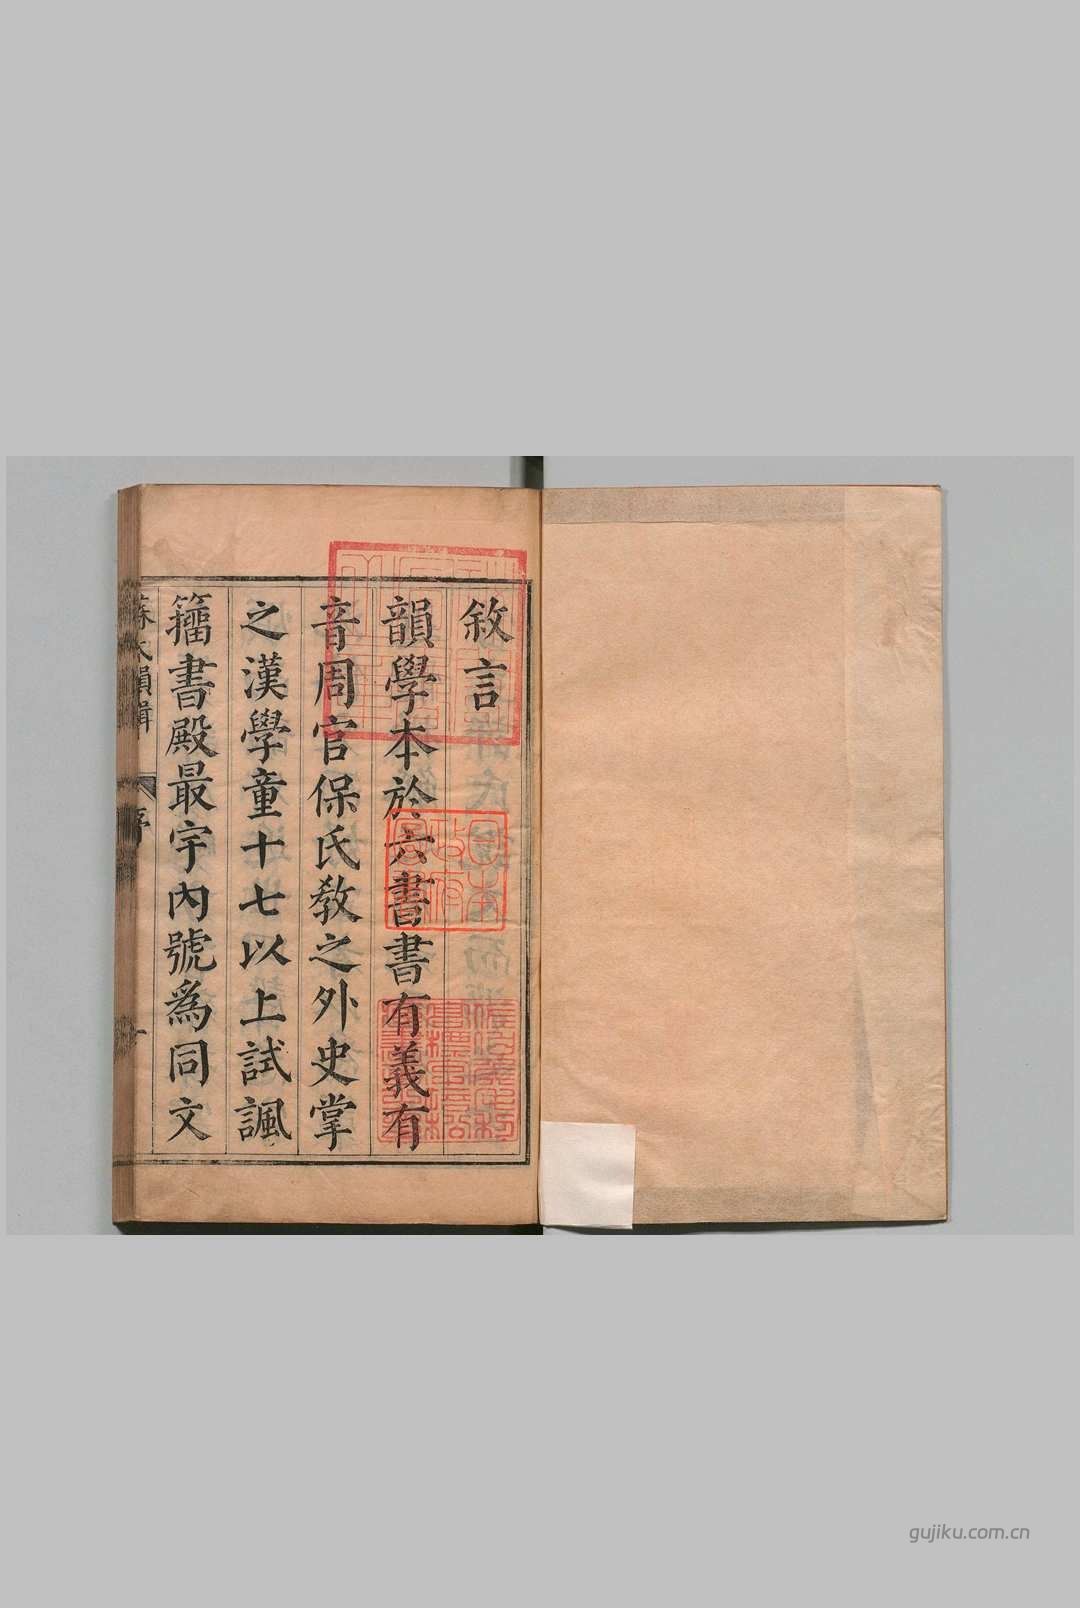 敘言
韻學本於六書書有義有
音周官保氏敎之外史掌
之漢學童十七以上試諷
籒書殿最宇內號爲同文
韻輯
序
一
日本政府圖書
gujiku.com.cn